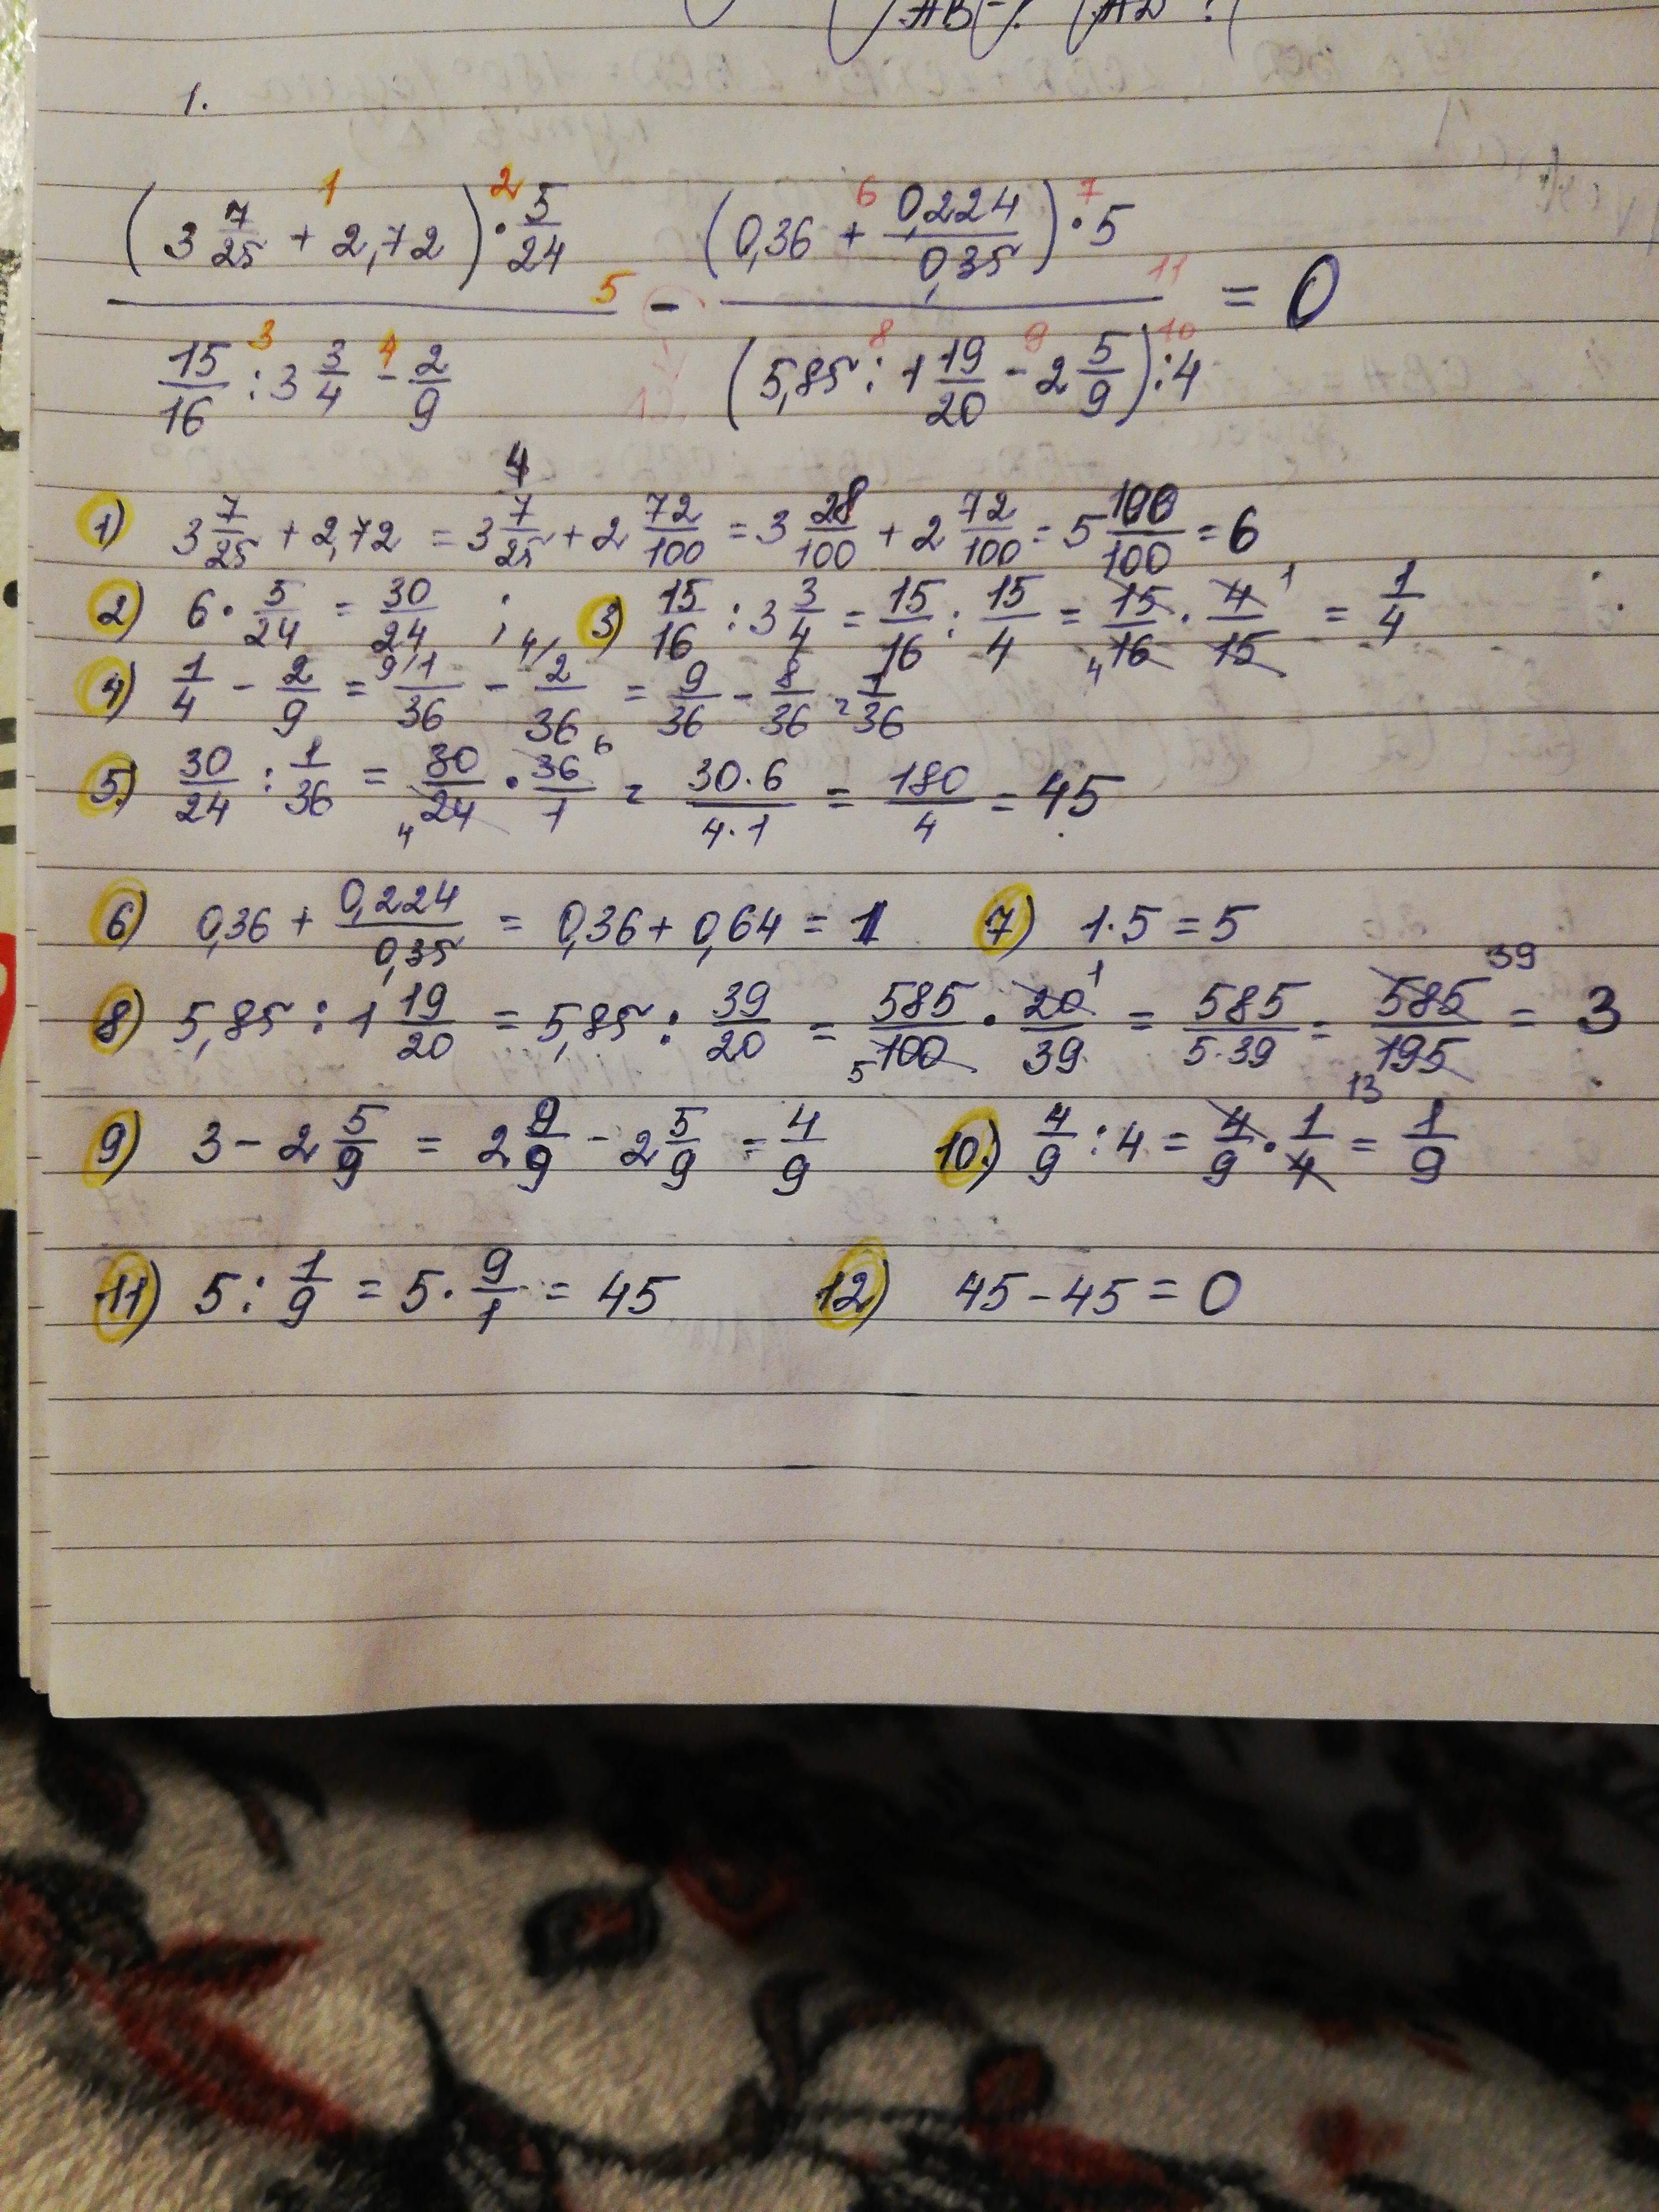 1.
(3 7/25 + 2,72) · 5/24 / (15/16 : 3 3/4 - 2/9) - (0,36 + 0,224/0,35) · 5 / ((5,85 : 1 19/20 - 2 5/9) : 4) = 0
1) 3 7/25 + 2,72 = 3 7/25 + 2 72/100 = 3 28/100 + 2 72/100 = 5 100/100 = 6
2) 6 · 5/24 = 30/24 ; 3) 15/16 : 3 3/4 = 15/16 : 15/4 = 15/16 · 4/15 = 1/4
4) 1/4 - 2/9 = 1/36 - 2/36 = 9/36 - 8/36 = 1/36
5) 30/24 : 1/36 = 30/24 · 36/1 = 30·6/4·1 = 180/4 = 45
6) 0,36 + 0,224/0,35 = 0,36 + 0,64 = 1 7) 1·5 = 5
8) 5,85 : 1 19/20 = 5,85 : 39/20 = 585/100 · 20/39 = 585/5·39 = 585/195 = 3
9) 3 - 2 5/9 = 2 9/9 - 2 5/9 = 4/9 10.) 4/9 : 4 = 4/9 · 1/4 = 1/9
11) 5 : 1/9 = 5 · 9/1 = 45 12) 45 - 45 = 0